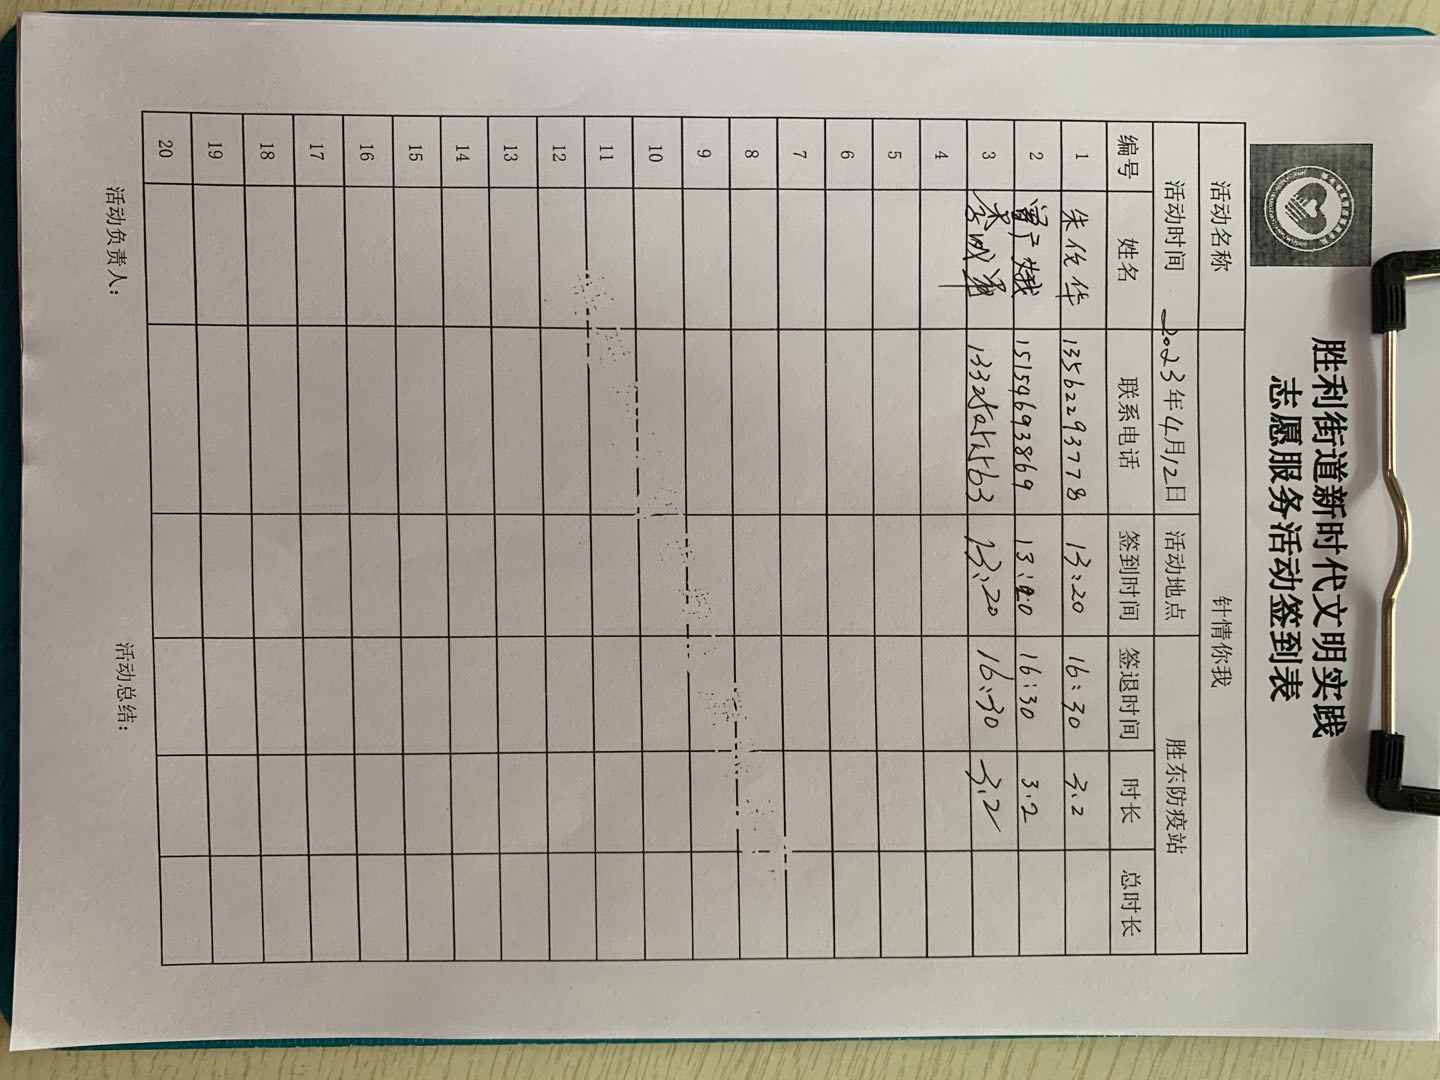 胜利街道新时代文明实践
志愿服务活动签到表
活动名称 针情你我
活动时间 2023年4月12日 活动地点 胜东防疫站
编号 姓名 联系电话 签到时间 签退时间 时长 总时长
1 朱 华 13562293778 13:20 16:30 3.2
2 曾广娥 15154693869 13:20 16:30 3.2
3 李 13:20 16:30 3.2
4
5
6
7
8
9
10
11
12
13
14
15
16
17
18
19
20
活动负责人： 活动总结：